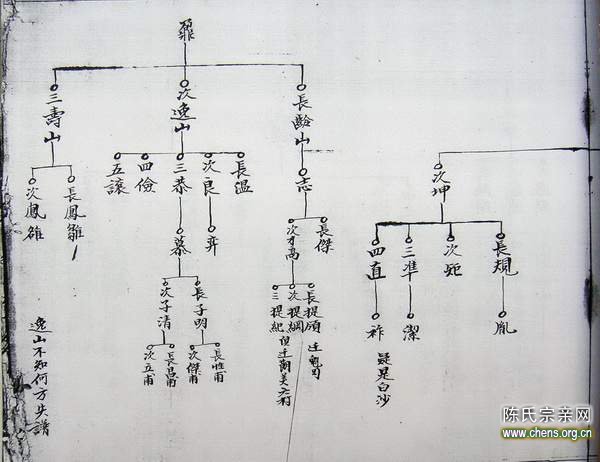 次坤
長規
次矩
三準
四直
胤
潔
祚
疑是白沙
鼐
長齡山
次逸山
三壽山
志
長傑
次才高
長提頎
次提綱
三提紀
長溫
次良
三恭
四儉
五讓
弈
慕
長子明
次子清
長惟甫
次傑甫
長昌甫
次立甫
長鳳雛
次鳳雄
逸山不知何方失譜
陈氏宗亲网
www.chens.org.cn